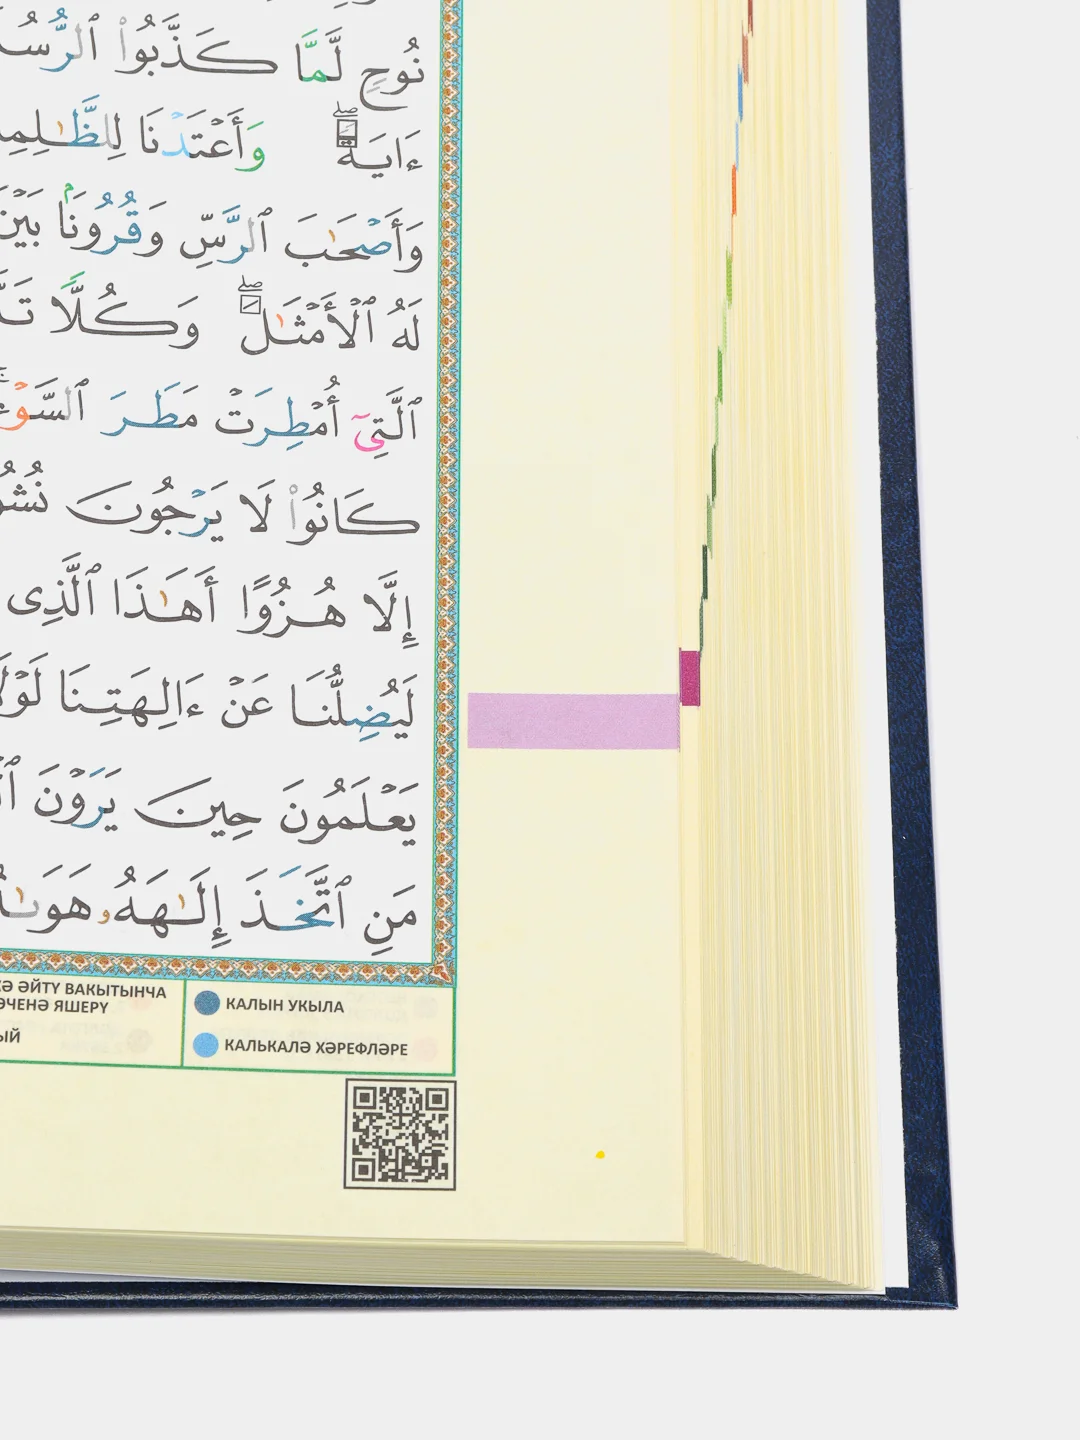 نُوحٍ لَّمَّا كَذَّبُوا۟ ٱلرُّسُ
ءَايَةًۖ وَأَعْتَدْنَا لِلظَّٰلِمِ
وَأَصْحَٰبَ ٱلرَّسِّ وَقُرُونًۢا بَيْنَ
لَهُ ٱلْأَمْثَٰلَۖ وَكُلًّا تَ
ٱلَّتِىٓ أُمْطِرَتْ مَطَرَ ٱلسَّوْءِۚ
كَانُوا۟ لَا يَرْجُونَ نُشُ
إِلَّا هُزُوًا أَهَٰذَا ٱلَّذِى
لَيُضِلُّنَا عَنْ ءَالِهَتِنَا لَوْلَا
يَعْلَمُونَ حِينَ يَرَوْنَ ٱ
مَنِ ٱتَّخَذَ إِلَٰهَهُۥ هَوَىٰ
ӘЙТҮ ВАКЫТЫНЧА
ЯШЕРҮ
ЫЙ
КАЛЫН УКЫЛА
КАЛЬКАЛӘ ХӘРЕФЛӘРЕ